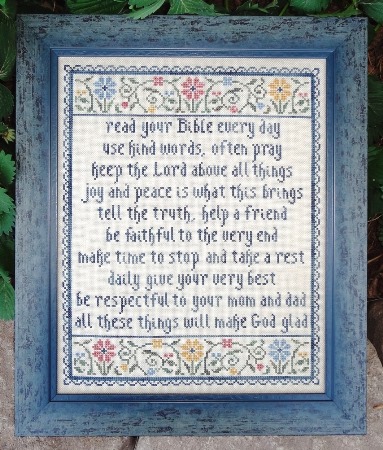 read your Bible every day
use kind words, often pray
keep the Lord above all things
joy and peace is what this brings
tell the truth, help a friend
be faithful to the very end
make time to stop and take a rest
daily give your very best
be respectful to your mom and dad
all these things will make God glad